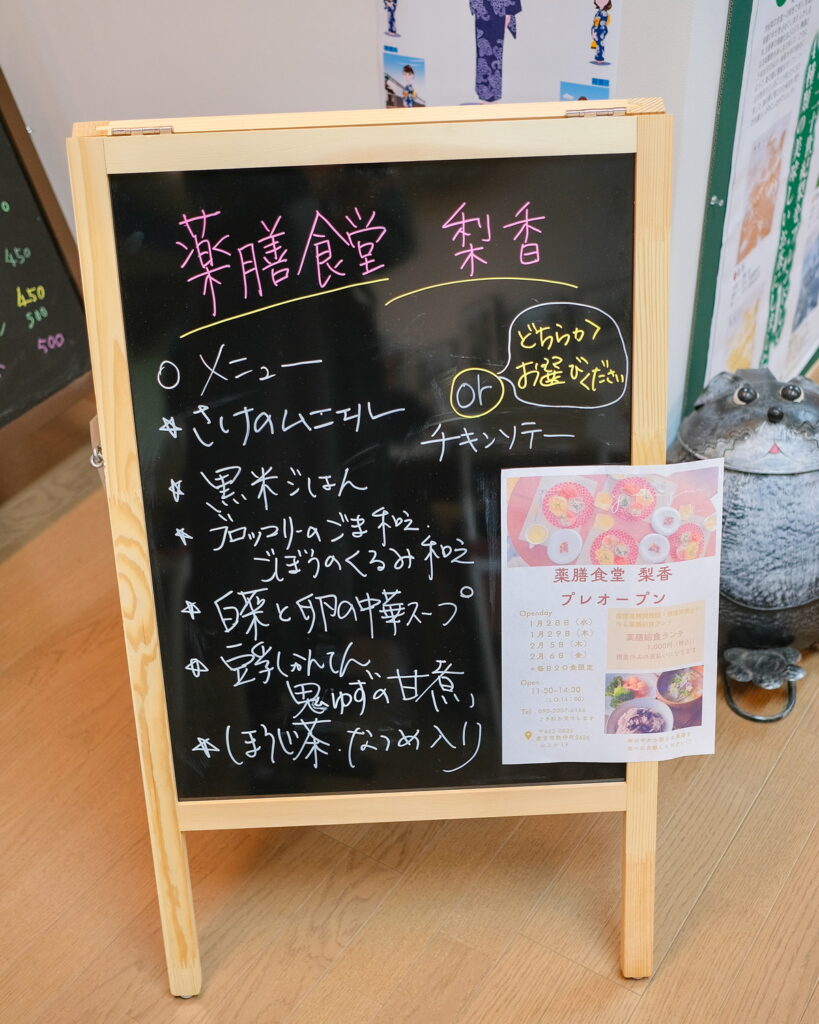 薬膳食堂 梨香
○ メニュー
どちらか
お選びください
☆ さけのムニエル
or
チキンソテー
☆ 黒米ごはん
☆ ブロッコリーのごま和え.
ごぼうのくるみ和え
☆ 白菜と卵の中華スープ
☆ 豆乳かんてん
鬼ゆずの甘煮,
☆ ほうじ茶.なつめ入り
薬膳食堂 梨香
プレオープン
Openday
1月28日（水）
1月29日（木）
2月 5日（木）
2月 6日（金）
＊毎日20食限定
薬膳給食ランチ
1,000円（税込）
Open
11:30-14:30
(LO.14:00)
Tel
ご予約お受けします
450
450
500
500